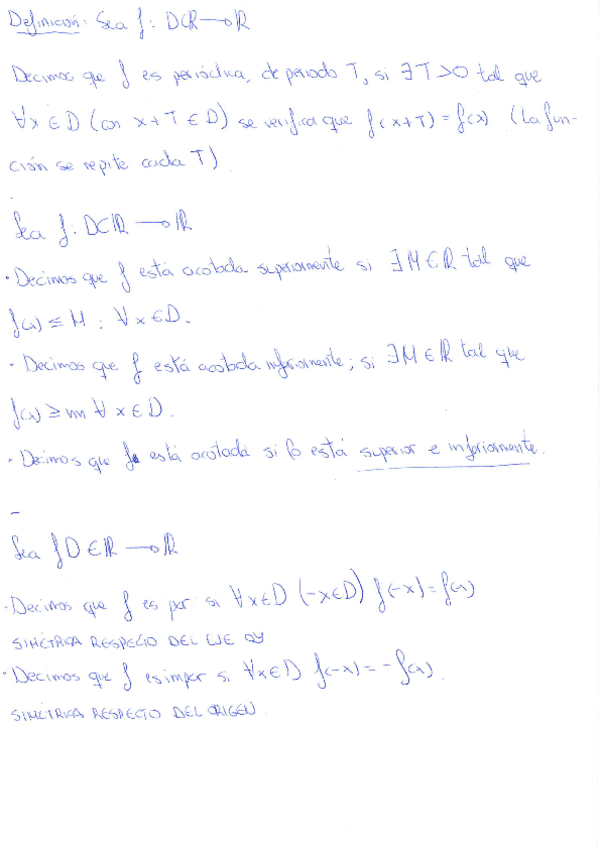 Definición: Sea f: D⊂ℝ → ℝ
Decimos que f es periódica, de periodo T, si ∃ T>0 tal que
∀x ∈ D (con x+T ∈ D) se verifica que f(x+T) = f(x) (La fun-
ción se repite cada T)
-
Sea f: D⊂ℝ → ℝ
· Decimos que f está acotada superiormente si ∃ M∈ℝ tal que
f(x) ≤ M ; ∀x∈D.
· Decimos que f está acotada inferiormente; si ∃ M∈ℝ tal que
f(x) ≥ m ∀ x∈D.
· Decimos que f está acotada si lo está superior e inferiormente.
-
Sea f D∈ℝ → ℝ
· Decimos que f es par si ∀x∈D (-x∈D) f(-x) = f(x)
SIMÉTRICA RESPECTO DEL EJE OY
· Decimos que f es impar si ∀x∈D f(-x) = -f(x).
SIMÉTRICA RESPECTO DEL ORIGEN.